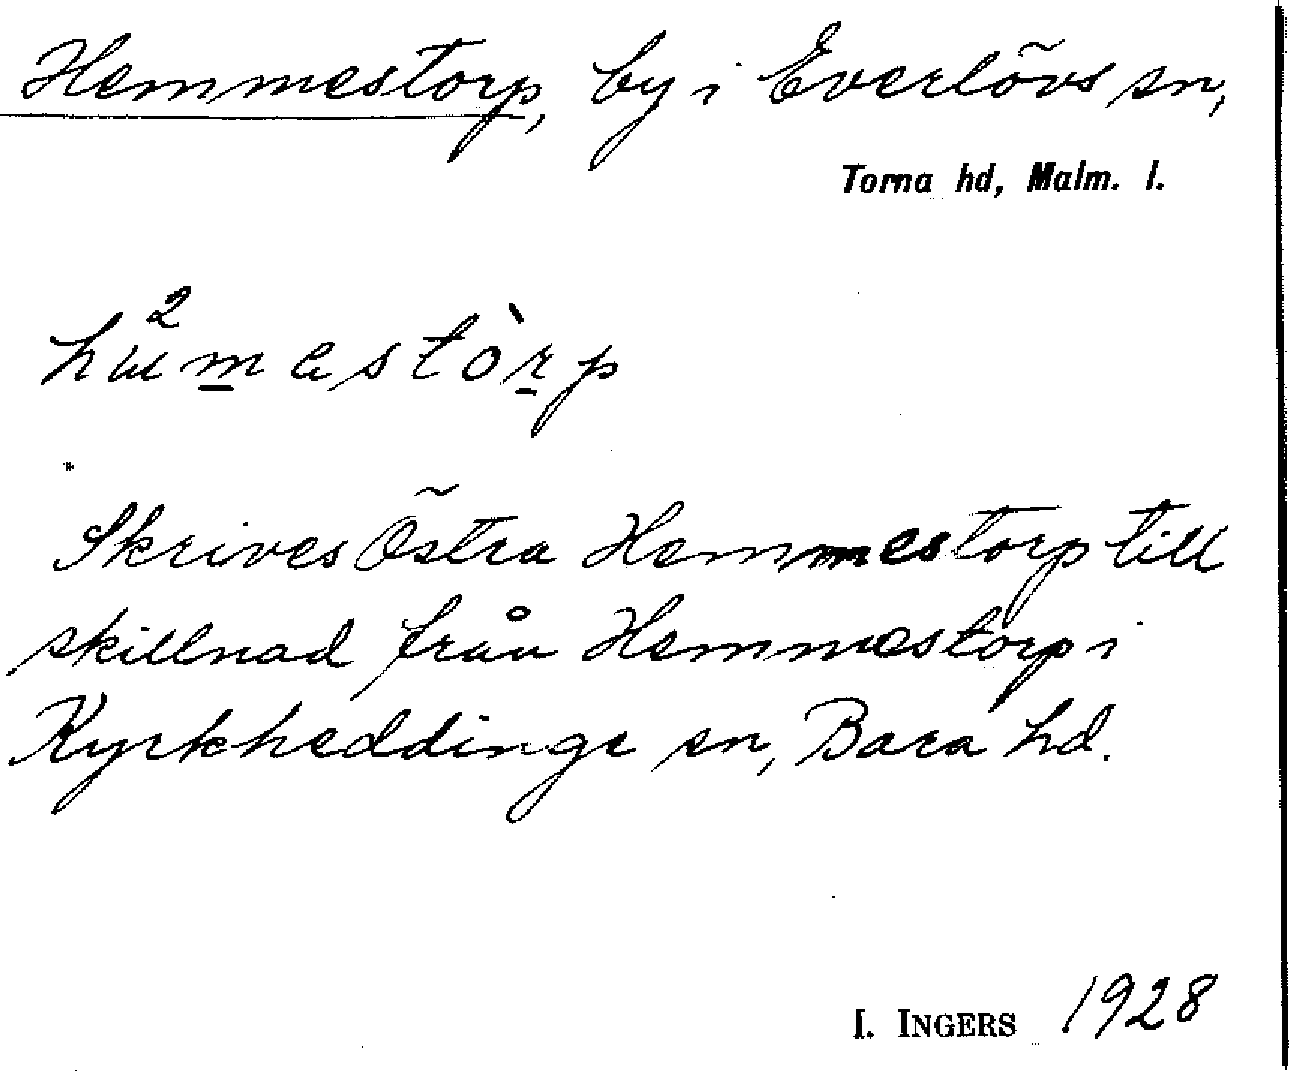 Hemmestorp, by i Everlövs sn,
Torna hd, Malm. l.
Skrives Östra Hemmestorp till
skillnad från Hemmestorp i
Kyrkheddinge sn, Bara hd.
I. INGERS 1928